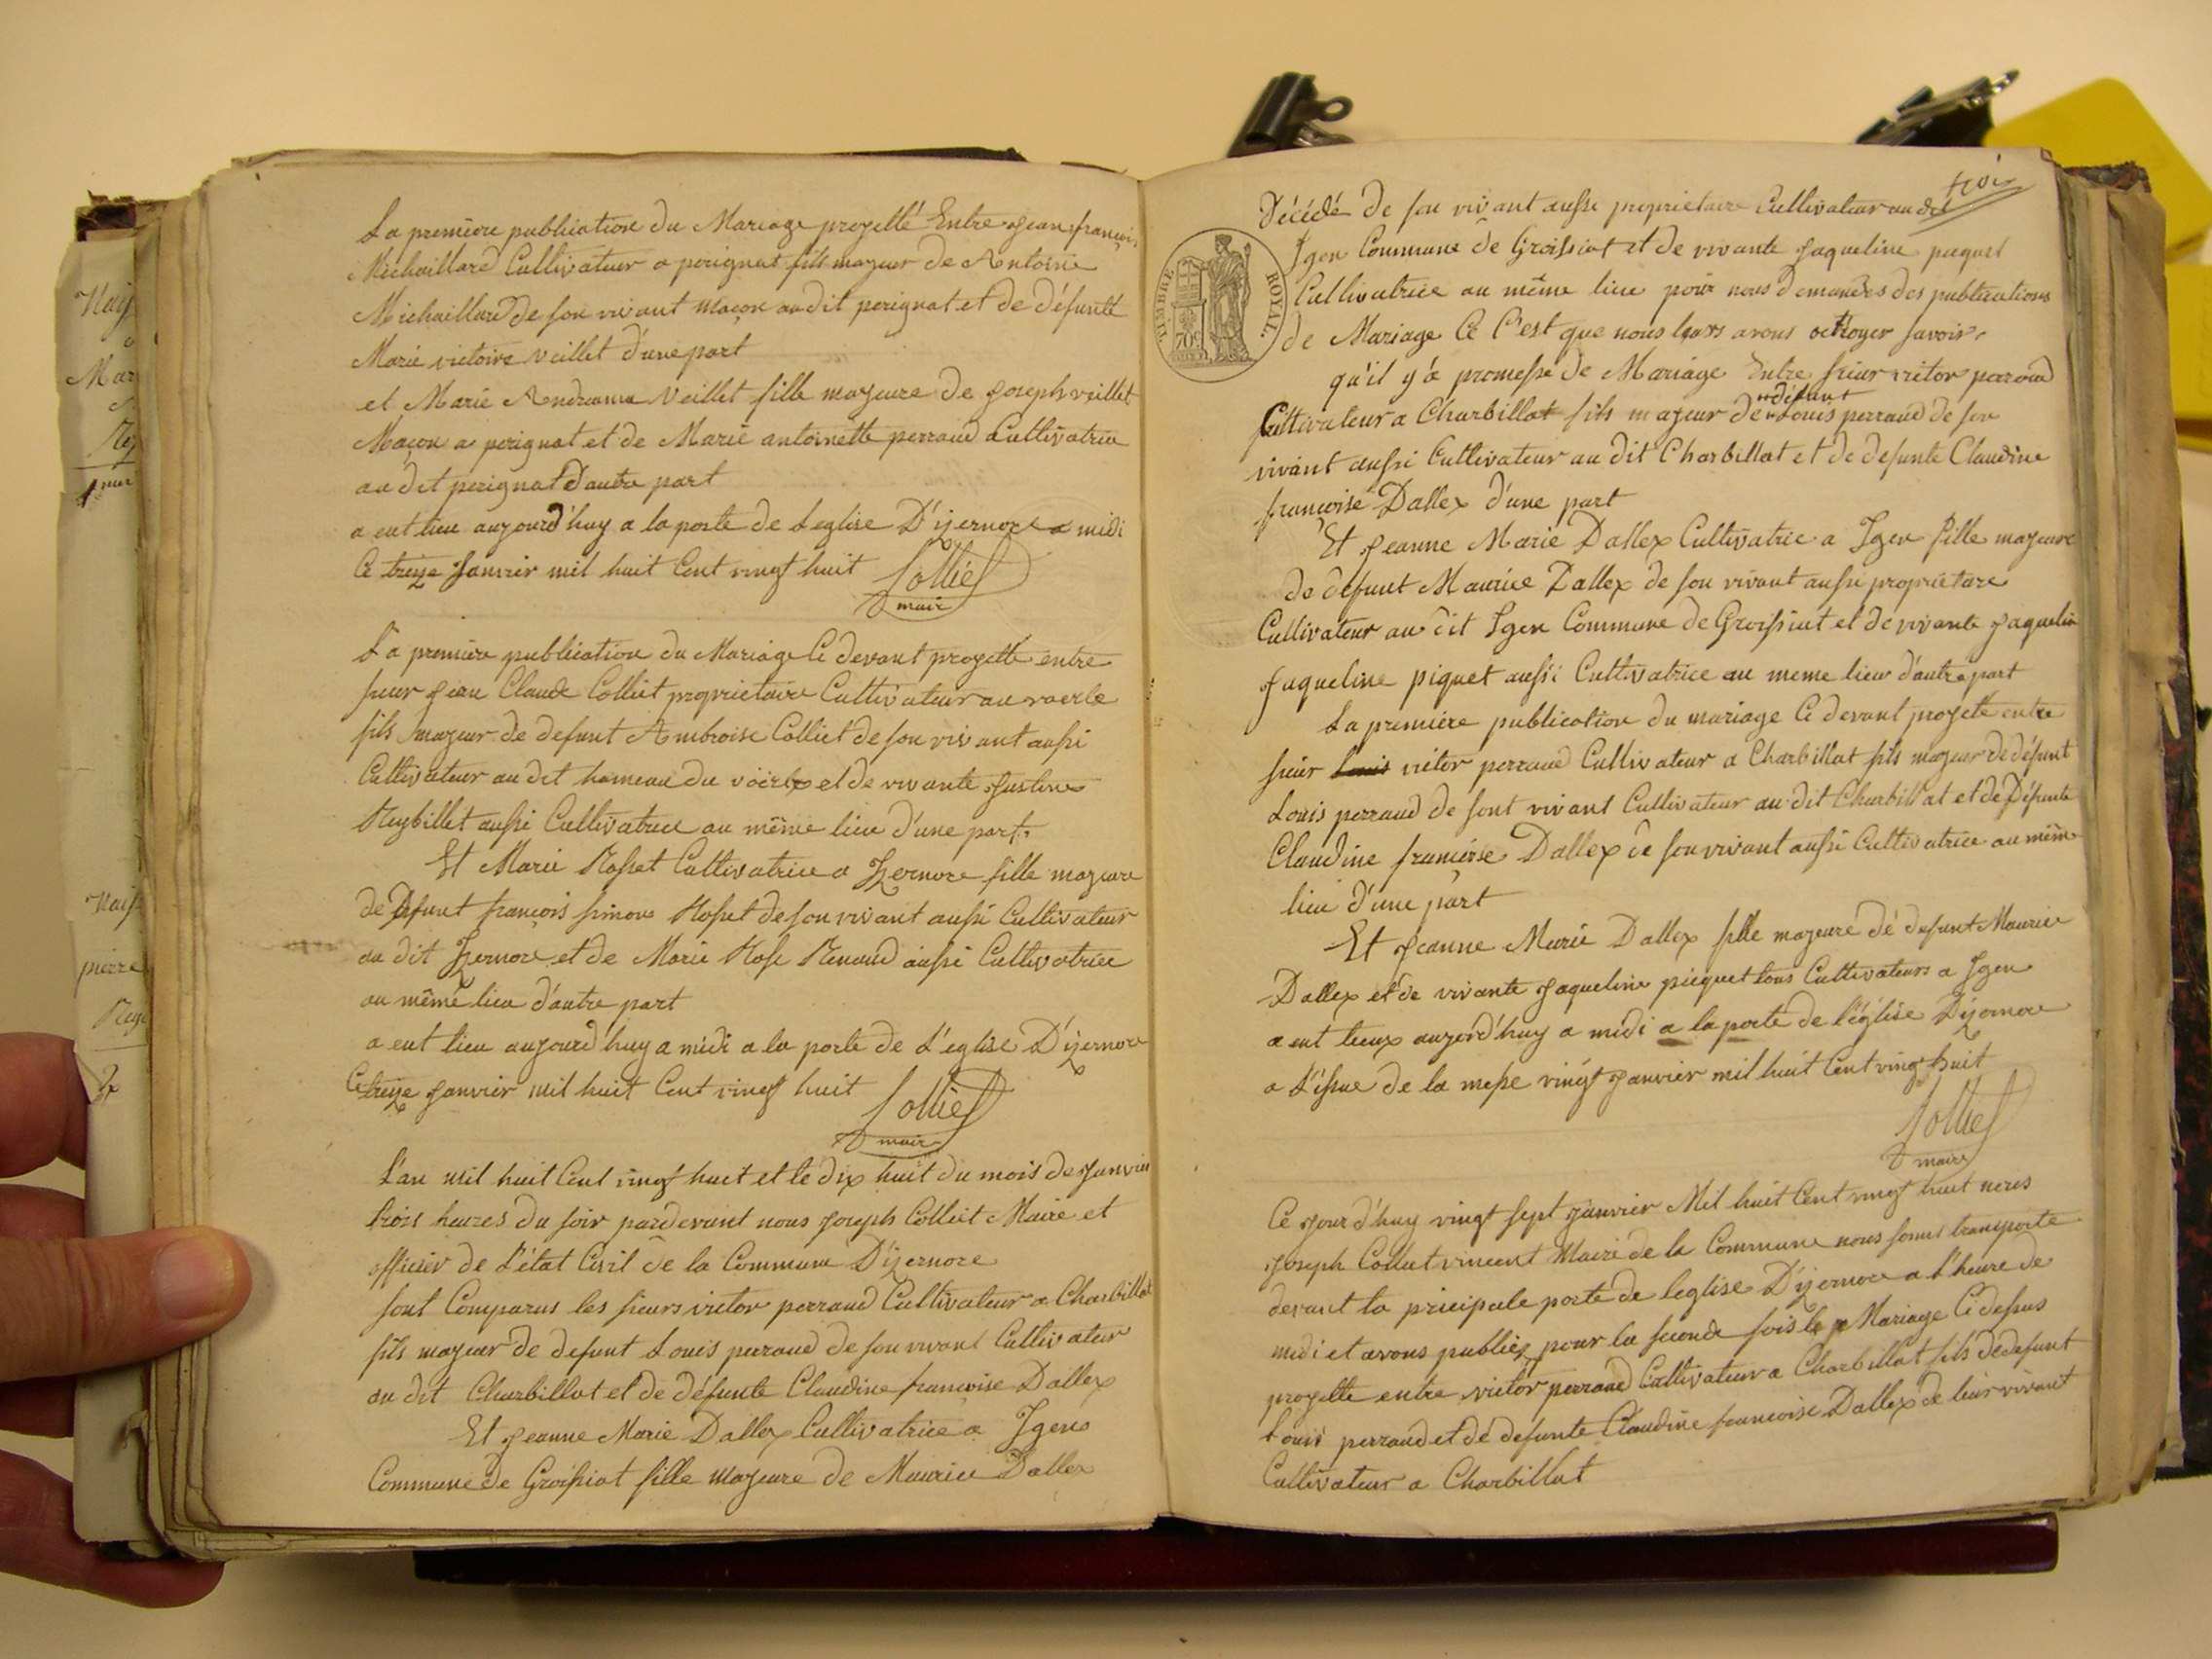 La premiere publication du Mariage projetté Entre jean françois
Michaillard Cultivateur a perignat fils majeur de Antoine
Michaillard de son vivant maçon au dit perignat et de défunte
Marie victoire veillet d'une part
et Marie Veillet fille majeure de joseph veillet
Maçon a perignat et de Marie antoinette perraud Cultivatrice
au dit perignat d'autre part
a eut lieu aujourd'huy a la porte de Leglise D'izernore a midi
Ce treize janvier mil huit Cent vingt huit
Colliet
maire
La premiere publication du Mariage Ci devant projetté entre
sieur jean Claude Colliet proprietaire Cultivateur au voerle
fils majeur de defunt Ambroise Colliet de son vivant aussi
Cultivateur au dit hameau du et de vivante justine
Reybillet aussi Cultivatrice au même lieu d'une part
Et Marie Rosset Cultivatrice a Izernore fille majeure
de Défunt françois simon Rosset de son vivant aussi Cultivateur
au dit Izernore et de Marie Rose Renaud aussi Cultivatrice
au même lieu d'autre part
a eut lieu aujourd'huy a midi a la porte de L'eglise D'izernore
Ce treize janvier mil huit Cent vingt huit
Colliet
maire
L'an mil huit Cent vingt huit et le dix huit du mois de janvier
trois heures du soir pardevant nous joseph Colliet Maire et
officier de L'état Civil de la Commune D'izernore
sont Comparus les sieurs victor perraud Cultivateur a Charbillat
fils majeur de defunt Louis perraud de son vivant Cultivateur
au dit Charbillat et de défunte Claudine françoise Dallex
Et jeanne Marie Dallex Cultivatrice a Igen
Commune de Groissiat fille majeure de Maurice Dallex
trois
Décédé de son vivant aussi proprietaire Cultivateur au dit
Igen Commune de Groissiat et de vivante jaqueline piquet
TIMBRE ROYAL
70c
Cultivatrice au même lieu pour nous demandes des publications
de Mariage Ce C'est que nous leurs avons octroyer savoir
qu'il y'a promesse de Mariage Entre sieur victor perraud
Cultivateur a Charbillat fils majeur de défunt Louis perraud de son
vivant aussi Cultivateur au dit Charbillat et de defunte Claudine
françoise Dallex d'une part
Et jeanne Marie Dallex Cultivatrice a Igen fille majeure
de defunt Maurice Dallex de son vivant aussi proprietare
Cultivateur au dit Igen Commune de Groissiat et de vivante jaqueline
jaqueline piquet aussi Cultivatrice au meme lieu d'autre part
La premiere publication du mariage Ci devant projeté entre
sieur Louis victor perraud Cultivateur a Charbillat fils majeur de défunt
Louis perraud de sont vivant Cultivateur au dit Charbillat et de Défunte
Claudine françoise Dallex de son vivant aussi Cultivatrice au même
lieu d'une part
Et jeanne Marie Dallex fille majeure de defunt Maurice
Dallex et de vivante jaqueline piequet tous Cultivateurs a Igen
a eut lieux aujourd'huy a midi a la porte de l'église D'izernore
a L'issue de la messe vingt janvier mil huit Cent vingt huit
Colliet
maire
Ce jour d'huy vingt sept janvier Mil huit Cent vingt huit nous
joseph Colliet vincent Maire de la Commune nous somes transporte
devant la pricipale porte de leglise D'izernore a l'heure de
midi et avons publiez pour la seconde fois le Mariage Ci dessus
projette entre victor perraud Cultivateur a Charbillat fils de defunt
Louis perraud et de defunte Claudine francoise Dallex de leur vivant
Cultivateur a Charbillat